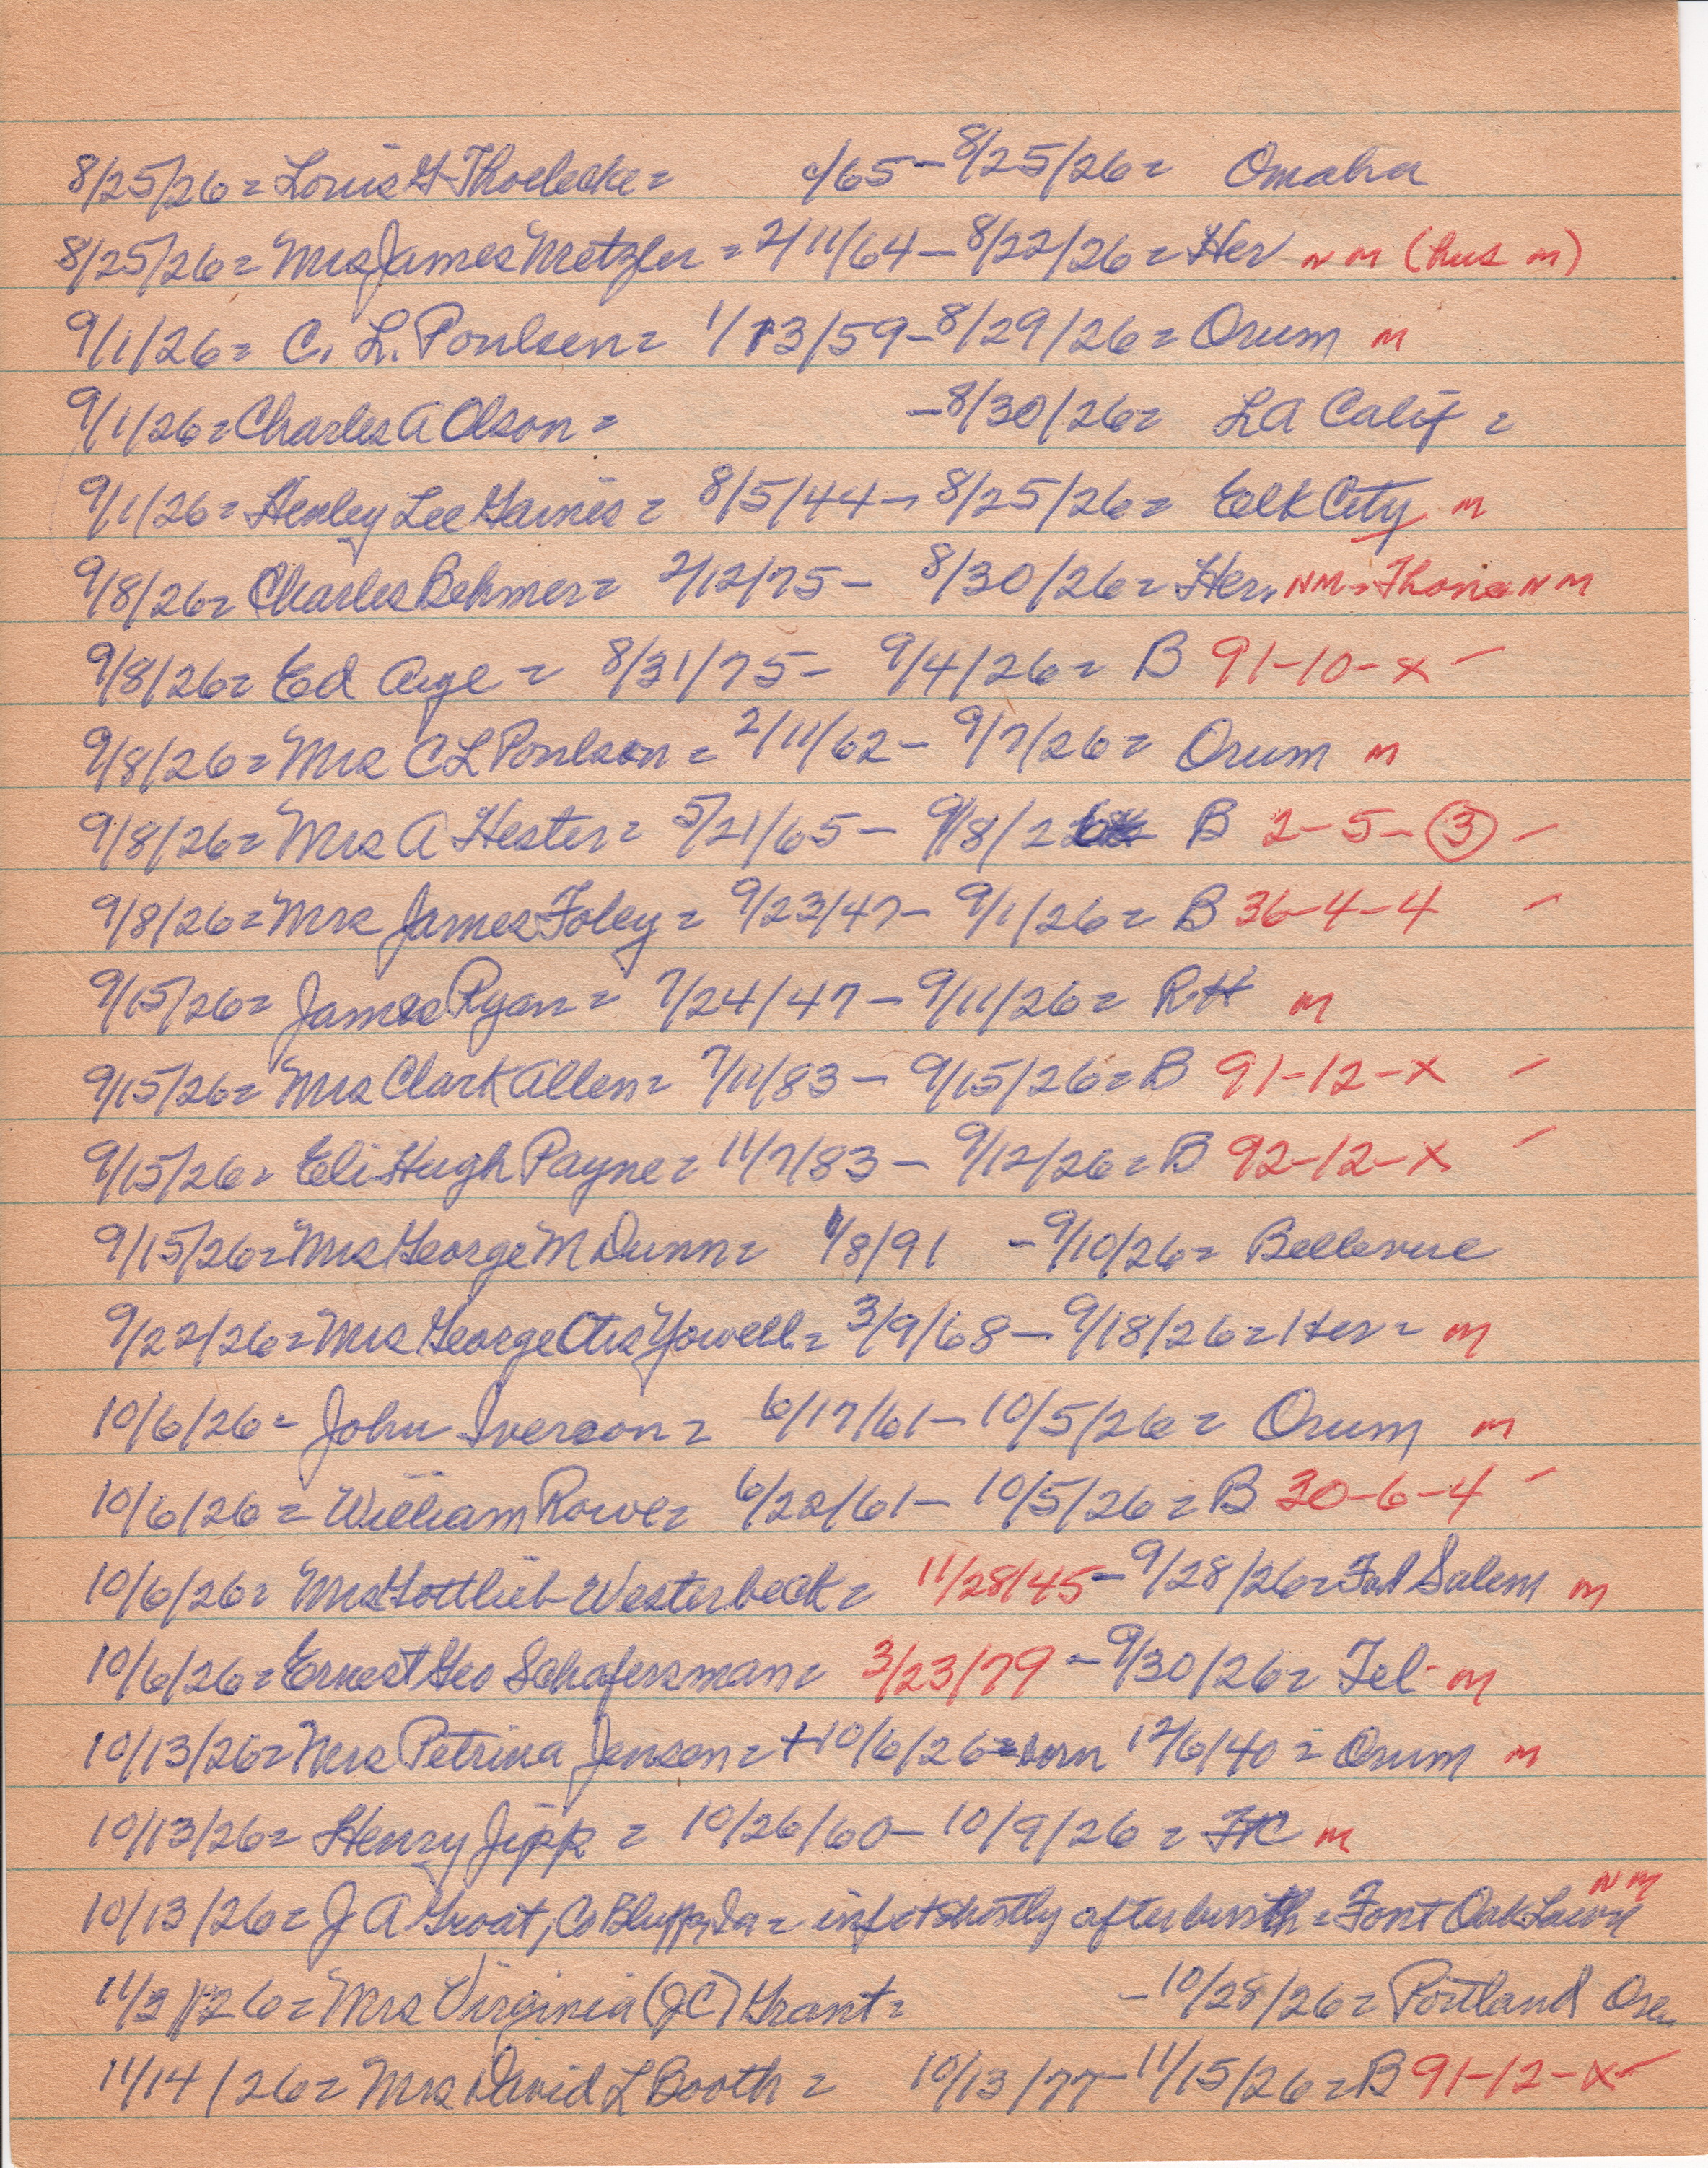 8/25/26 = Louis G Thoelecke = c/65 - 8/25/26 = Omaha
8/25/26 = Mrs James Metzler = 2/11/64 - 8/22/26 = Her NM (hus m)
9/1/26 = C. L. Poulsen = 1/13/59 - 8/29/26 = Orum m
9/1/26 = Charles A Olson = - 8/30/26 = LA Calif =
9/1/26 = Henley Lee Gaines = 8/5/44 - 8/25/26 = Elk City m
9/8/26 = Charles Behmer = 2/12/75 - 8/30/26 = Her, NM = Thone NM
9/8/26 = Ed Aye = 8/31/75 - 9/4/26 = B 91-10-x -
9/8/26 = Mrs C L Poulson = 2/11/62 - 9/7/26 = Orum m
9/8/26 = Mrs A Hester = 5/21/65 - 9/8/26 B 2-5-3 -
9/8/26 = Mrs James Foley = 9/23/47 - 9/1/26 = B 36-4-4 -
9/15/26 = James Ryan = 7/24/47 - 9/11/26 = RH m
9/15/26 = Mrs Clark Allen = 7/11/83 - 9/15/26 = B 91-12-x -
9/15/26 = Eli Hugh Payne = 11/7/83 - 9/12/26 = B 92-12-x -
9/15/26 = Mrs George M Dunn = /8/91 - 9/10/26 = Bellevue
9/22/26 = Mrs George Otis Yowell = 3/9/68 - 9/18/26 = Her = m
10/6/26 = John Iverson = 6/17/61 - 10/5/26 = Orum m
10/6/26 = William Rowe = 6/20/61 - 10/5/26 = B 30-6-4 -
10/6/26 = Mrs Gottlieb Westerbeck = 11/28/45 - 9/28/26 = Salem m
10/6/26 = Ernest Geo Schafersman = 3/23/79 - 9/30/26 = Tel - m
10/13/26 = Mrs Petrina Jensen = + 10/6/26 = born 12/6/40 = Orum m
10/13/26 = Henry Jipp = 10/26/60 - 10/9/26 = FtC m
10/13/26 = J A Groat, Co Bluffs, Ia = inf + shortly after birth = Font Oak Lawn NM
11/3/26 = Mrs Virginia (JC) Grant = - 10/28/26 = Portland Ore
11/14/26 = Mrs David L Booth = 10/13/77 - 11/15/26 = B 91-12-x -